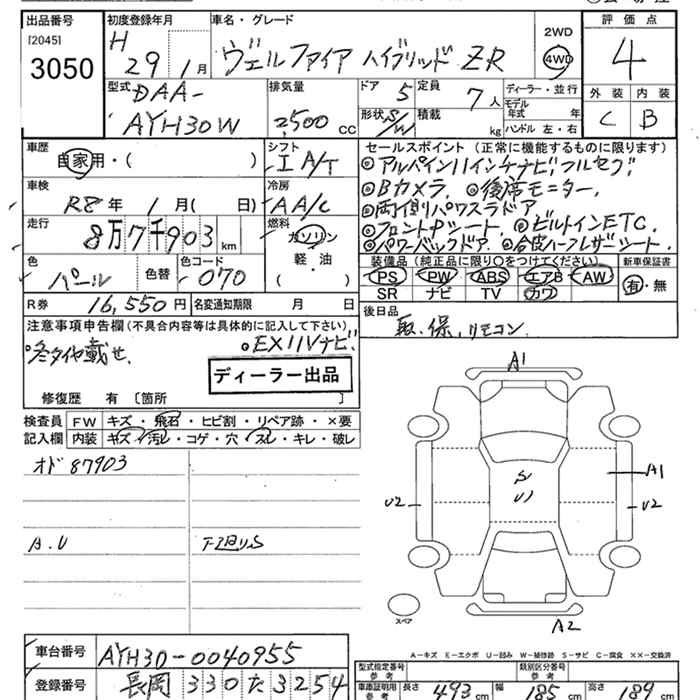 出品番号
[2045]
3050
初度登録年月
H 29 1月
車名・グレード
ヴェルファイア ハイブリッド ZR
2WD
4WD
評価点
4
外装 内装
C B
型式
DAA-
AYH30W
排気量
2,500 CC
ドア 5
形状 S/W
定員 7人
積載 kg
ディーラー・並行
モデル年式 年
ハンドル 左・右
車歴
自家用・( )
シフト
IA/T
車検
R8年 1月( 日)
冷房
AA/C
走行
8万7千903 km
燃料
ガソリン
軽・油
( )
色
パール
色替
色コード
070
R券 16,550円
名変通知期限 月 日
セールスポイント (正常に機能するものに限ります)
◎アルパイン11インチナビ フルセグ
◎Bカメラ. ◎後席モニター.
◎両側パワスラドア
◎フロントPシート. ◎ビルトインETC.
◎パワーバックドア. ◎合皮ハーフレザーシート.
装備品 (純正品に限り○をつけてください)
新車保証書
PS PW ABS エアB AW
SR ナビ TV カワ
有・無
後日品
取.保.リモコン.
注意事項申告欄 (不具合内容等は具体的に記入して下さい)
◎冬タイヤ載せ.
◎EX11Vナビ.
ディーラー出品
修復歴 有 〔箇所 〕
検査員記入欄
FW キズ・飛石・ヒビ割・リペア跡・×要
内装 キズ・汚レ・コゲ・穴・スレ・キレ・破レ
オド 87903
A.U
下廻りS
A1
A1
U2
U2
S
U1
A2
スペア
A-キズ E-エクボ U-凹み W-補修跡 S-サビ C-腐食 XX-交換済
車台番号
AYH30-0040955
登録番号
長岡 330 た 3254
型式指定番号 参考
類別区分番号 参考
車庫証明用 参考
長さ 493 cm
幅 185 cm
高さ 189 cm